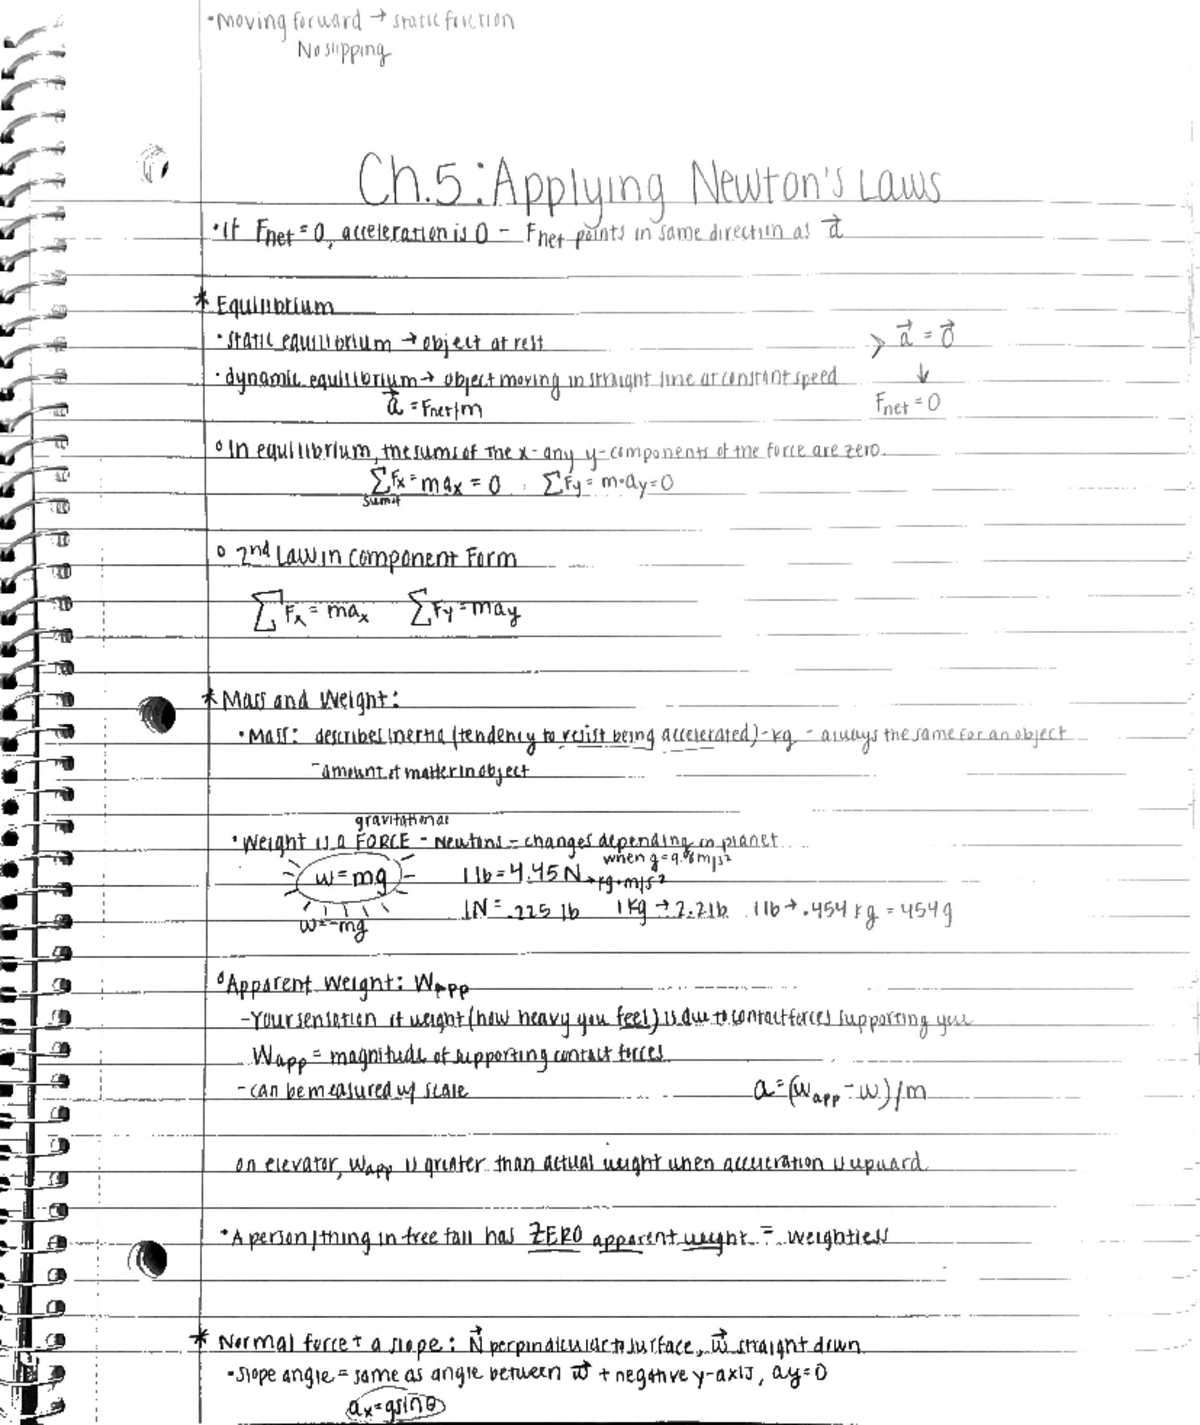 •Moving forward → static friction
No slipping
Ch.5: Applying Newton's Laws
•If Fnet = 0, acceleration is 0 - Fnet points in same direction as a⃗
* Equilibrium
•static equilibrium → object at rest
> a⃗ = 0⃗
•dynamic equilibrium → object moving in straight line at constant speed
↓
a⃗ = Fnet/m
Fnet = 0
° In equilibrium, the sums of the x- any y-components of the force are zero.
∑Fx = max = 0 ∑Fy = m·ay = 0
sum of
° 2nd Law in component Form
∑Fx = max ∑Fy = may
* Mass and Weight:
•Mass: describes inertia (tendency to resist being accelerated) - kg - always the same for an object
-amount of matter in object
gravitational
•Weight is a FORCE - Newtons - changes depending on planet
when g=9.8m/s²
w = mg 1 lb = 4.45 N → kg·m/s²
1N = .225 lb 1 kg → 2.2 lb 1 lb → .454 kg = 454 g
w = -mg
° Apparent Weight: Wapp
-Your sensation of weight (how heavy you feel) is due to contact forces supporting you
Wapp = magnitude of supporting contact forces
-can be measured w/ scale
a = (wapp - w)/m
on elevator, wapp is greater than actual weight when acceleration is upward
•A person/thing in free fall has ZERO apparent weight = weightless
* Normal force + a slope: N⃗ perpindicular to surface, w⃗ straight down
•slope angle = same as angle between w⃗ + negative y-axis, ay=0
ax = gsinθ